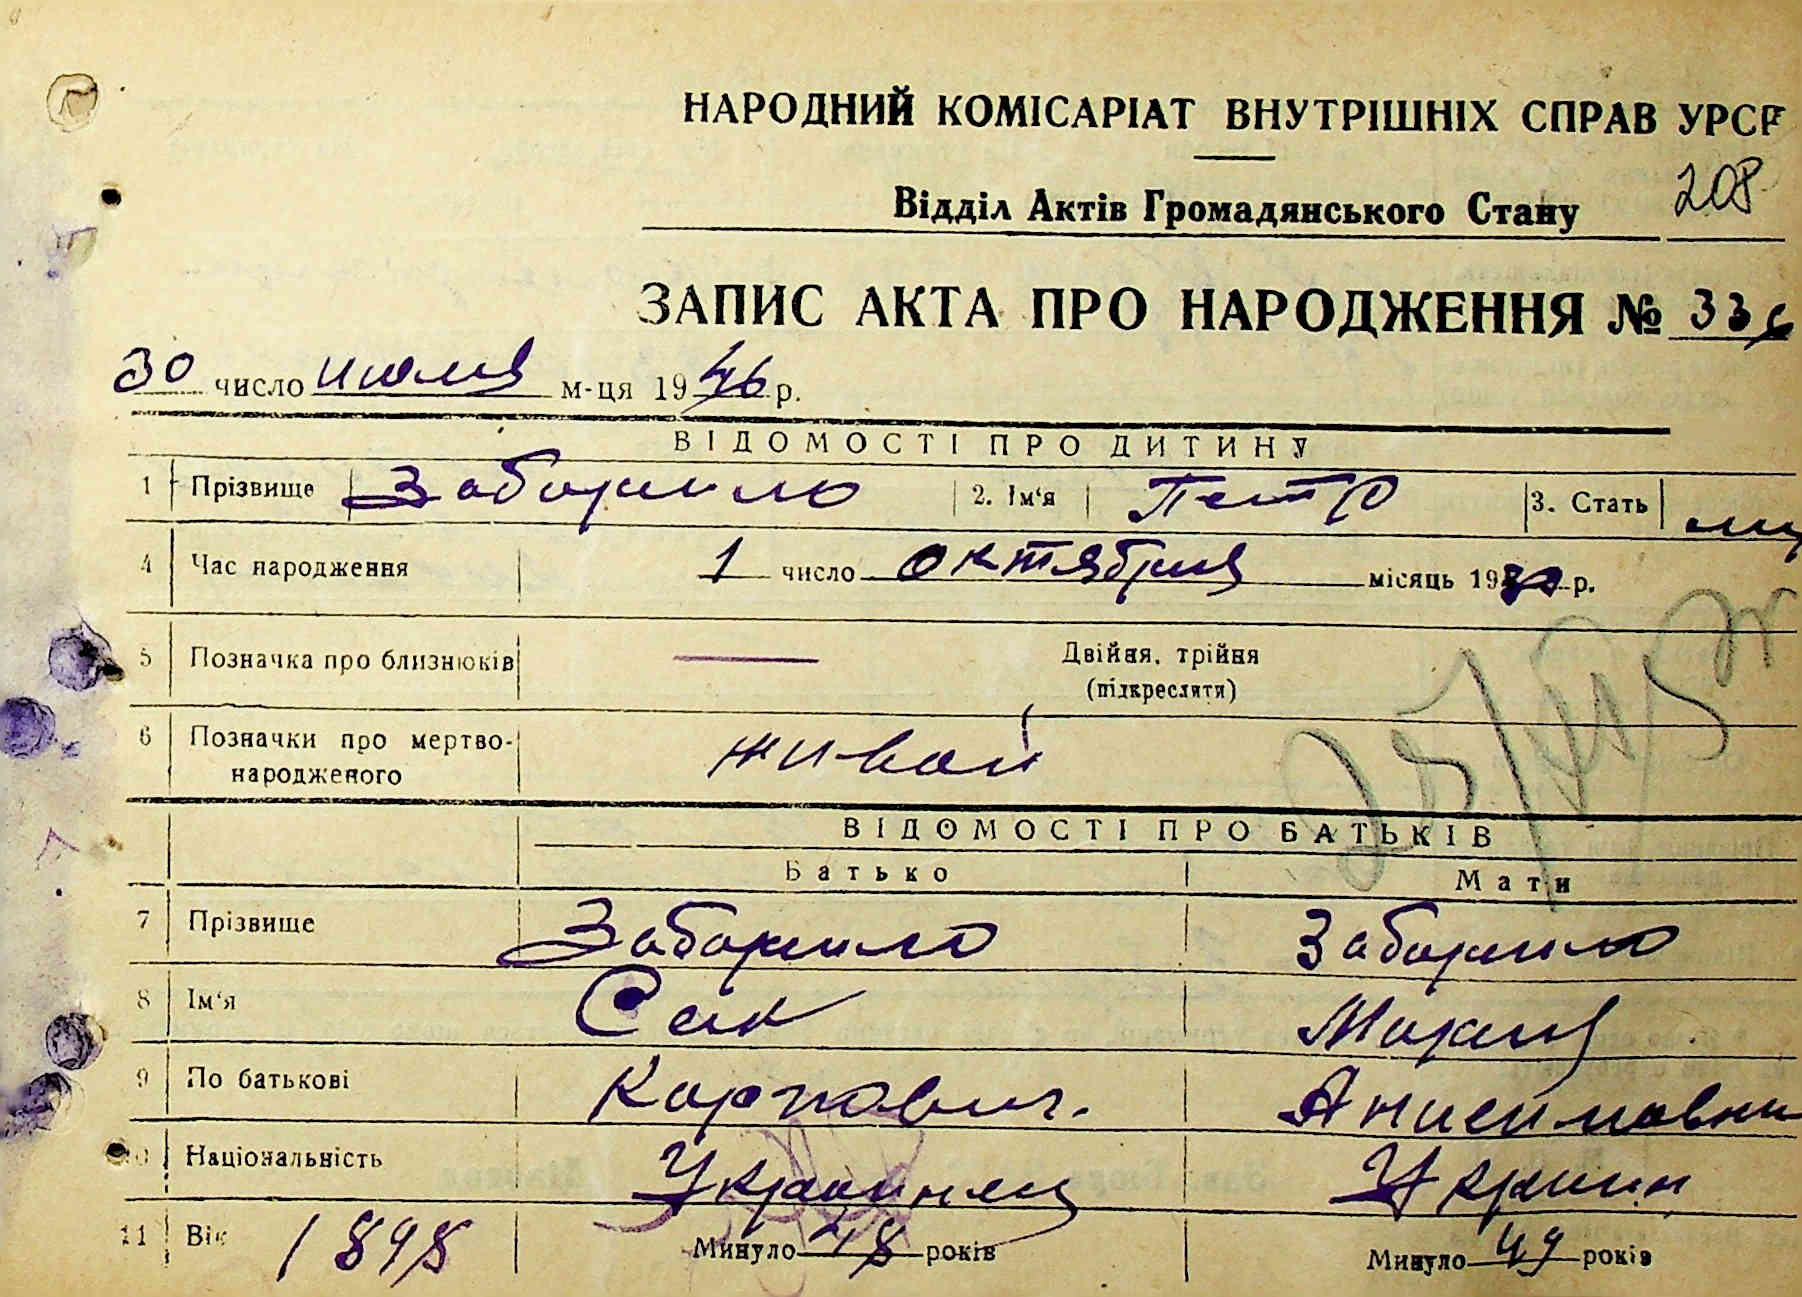 НАРОДНИЙ КОМІСАРІАТ ВНУТРІШНІХ СПРАВ УРСР
208
Відділ Актів Громадянського Стану
ЗАПИС АКТА ПРО НАРОДЖЕННЯ № 336
30 число июля м-ця 1946 р.
ВІДОМОСТІ ПРО ДИТИНУ
1 Прізвище Заборило 2. Ім'я Петр 3. Стать
4 Час народження 1 число октября місяць 19 р.
5 Позначка про близнюків — Двійня, трійня
(підкреслити)
6 Позначки про мертво-
народженого живой
ВІДОМОСТІ ПРО БАТЬКІВ
Батько Мати
7 Прізвище Заборило Заборило
8 Ім'я Сак Мария
9 По батькові Карпович. Анисимовна
10 Національність Украинец Украин
11 Вік 1898 Минуло 48 років Минуло 49 років